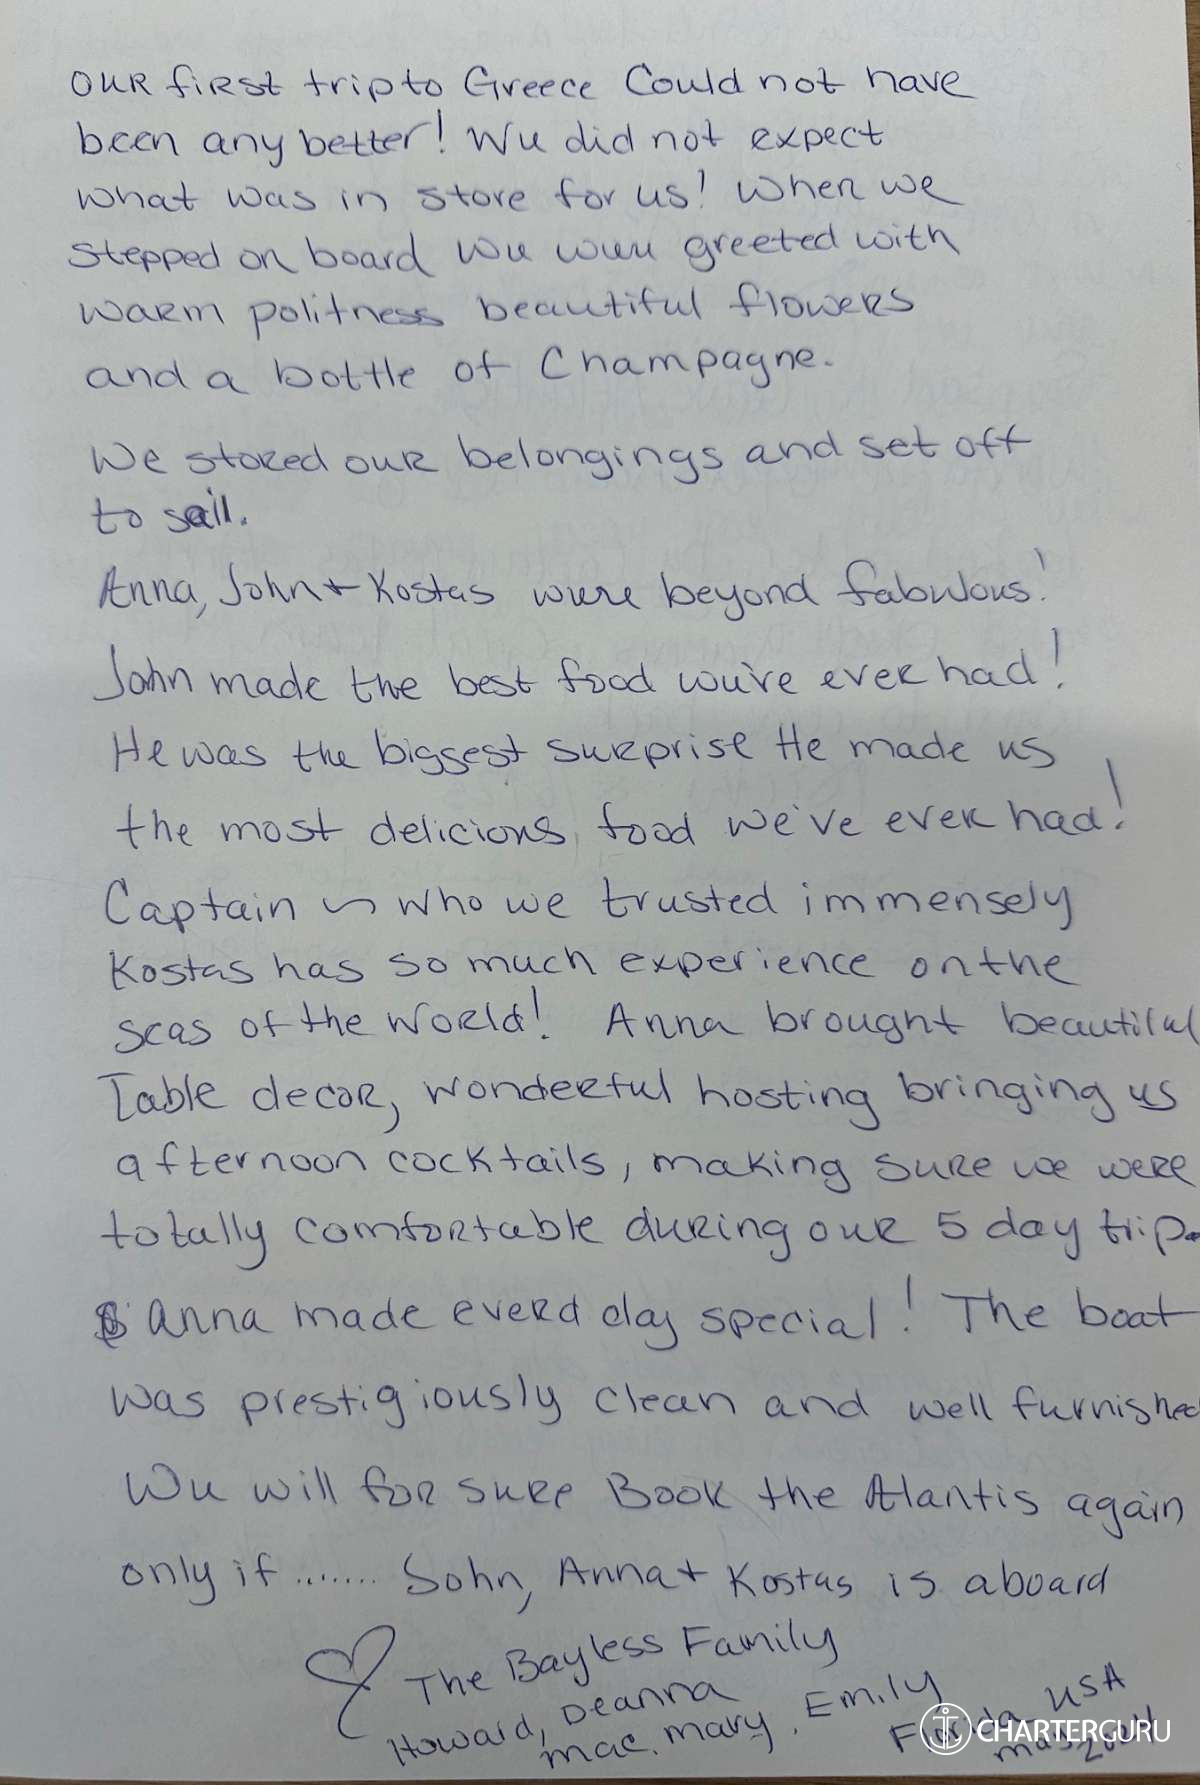 Our first trip to Greece Could not have
been any better! We did not expect
what was in store for us! When we
stepped on board we were greeted with
warm politness beautiful flowers
and a bottle of Champagne.
We stored our belongings and set off
to sail.
Anna, John + Kostas were beyond fabulous!
John made the best food we've ever had!
He was the biggest surprise He made us
the most delicious food we've ever had!
Captain ~ who we trusted immensely
Kostas has so much experience on the
seas of the world! Anna brought beautiful
Table decor, wonderful hosting bringing us
afternoon cocktails, making sure we were
totally comfortable during our 5 day trip.
Anna made everd day special! The boat
was prestigiously clean and well furnished
We will for sure Book the Atlantis again
only if ....... John, Anna + Kostas is aboard
The Bayless Family
Howard, Deanna
Mac, Mary, Emily
Florida USA
May 2024
CHARTERGURU